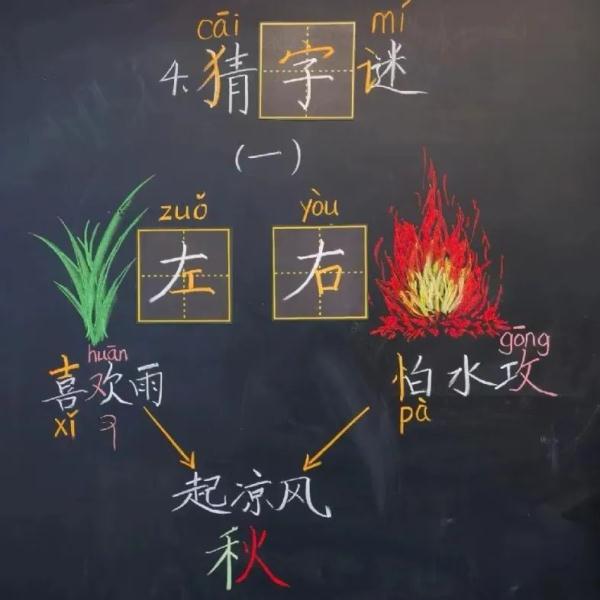 cāi mí
4.猜字谜
(一)
zuǒ yòu
左 右
huān gōng
喜欢雨 怕水攻
xǐ pà
起凉风
秋